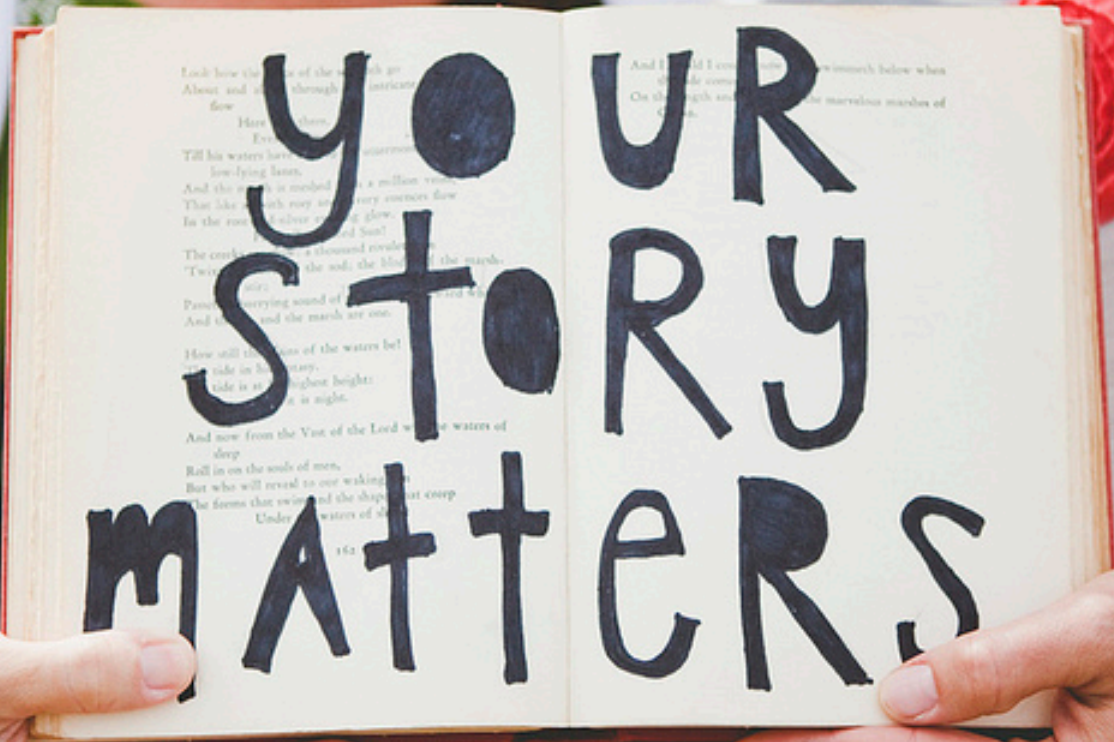 yOUR
StORy
mAtteRS
Look how the of the go
About and through intricate
flow
Here there,
Till his waters have
low-lying lanes,
And the is meshed a million
That like with rosy and essences flow
In the glow.
Sun!
The creeks a thousand rivulets
the sod; the of the marsh-
stir;
sound of
And and the marsh are one.
How still the of the waters be!
tide in his
tide is at highest height:
it is night.
And now from the Vast of the Lord the waters of
sleep
Roll in on the souls of men,
But who will reveal to our waking
The forms that swim and the shapes that creep
Under waters of
162
And I I swimmeth below when
comes
On the length and the marvelous marshes of